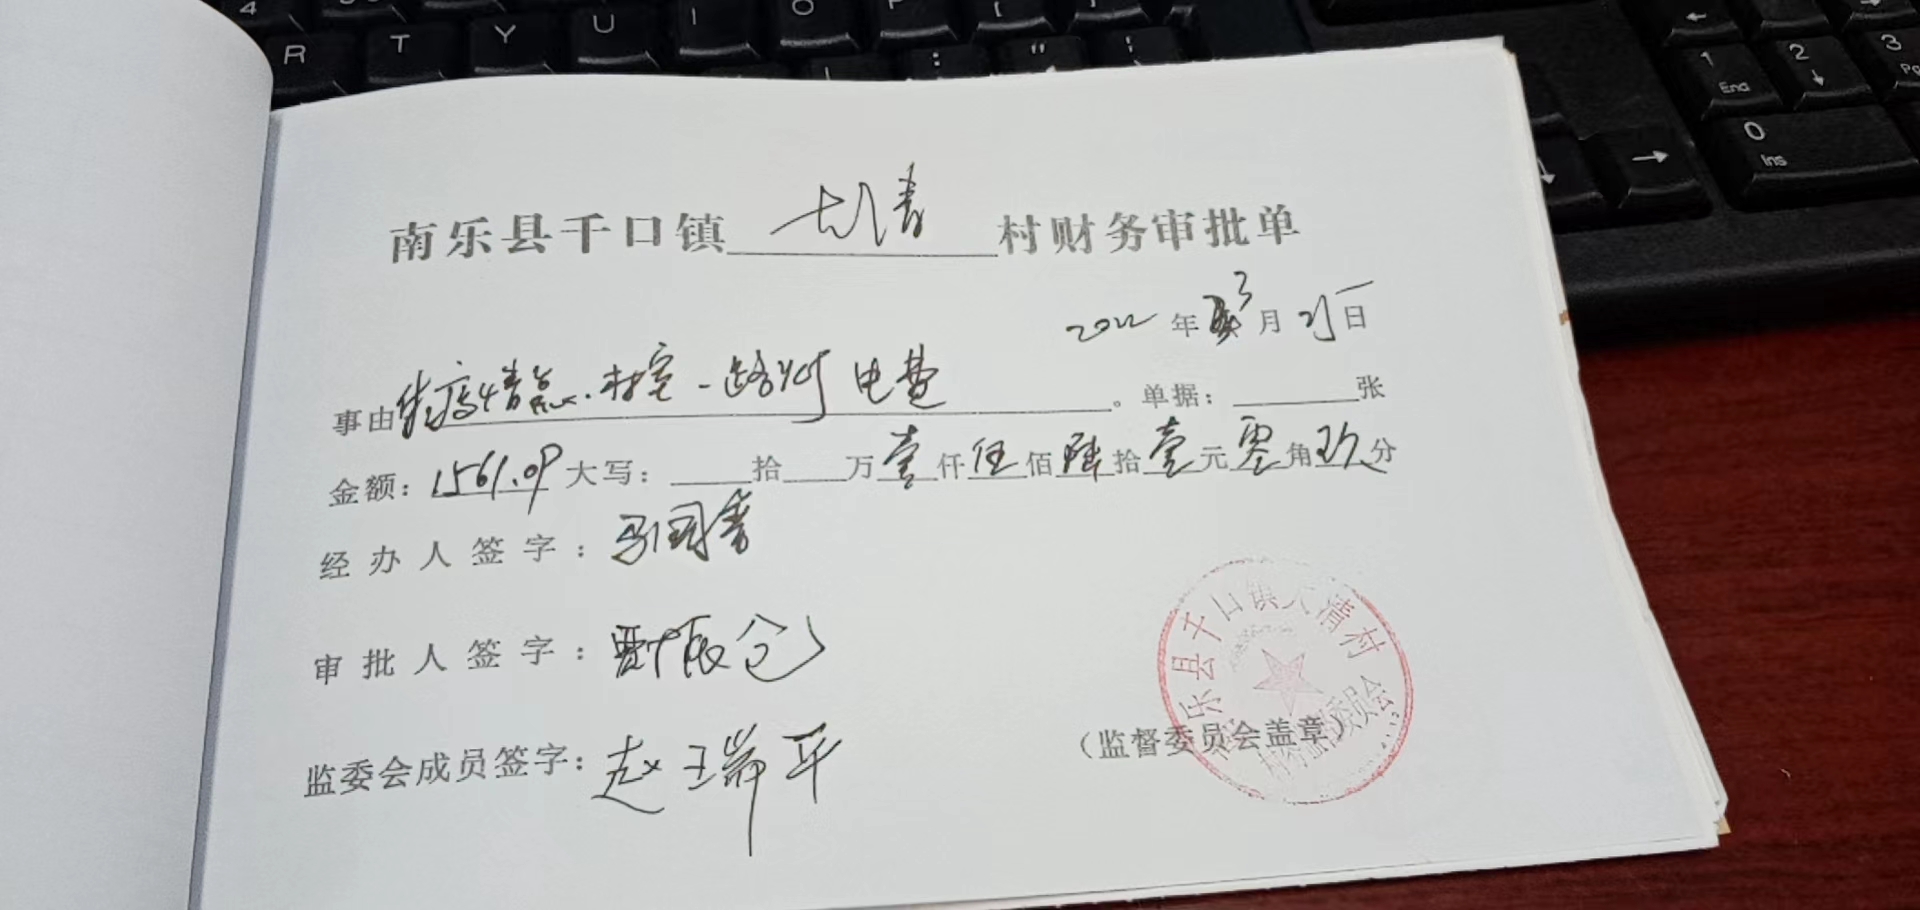 4
R T Y U I O P [ ]
: " ;
←
1 End 2 ↓ 3
0 Ins
→
南乐县千口镇大清村财务审批单
2022年3月21日
事由疫情点.村室-路灯电费。单据：张
金额：1561.09大写：拾万壹仟伍佰陆拾壹元零角玖分
经办人签字：马国秀
审批人签字：贾振仓
监委会成员签字：赵瑞平
（监督委员会盖章）
乐县千口镇大清村
委员会